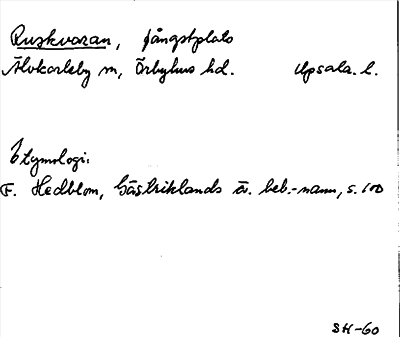 Ruskvaran, fångstplats
Älvkarleby sn, Örbyhus hd. Upsala. l.
Etymologi:
F. Hedblom, Gästriklands äv. beb.-namn, s. 100
SH-60